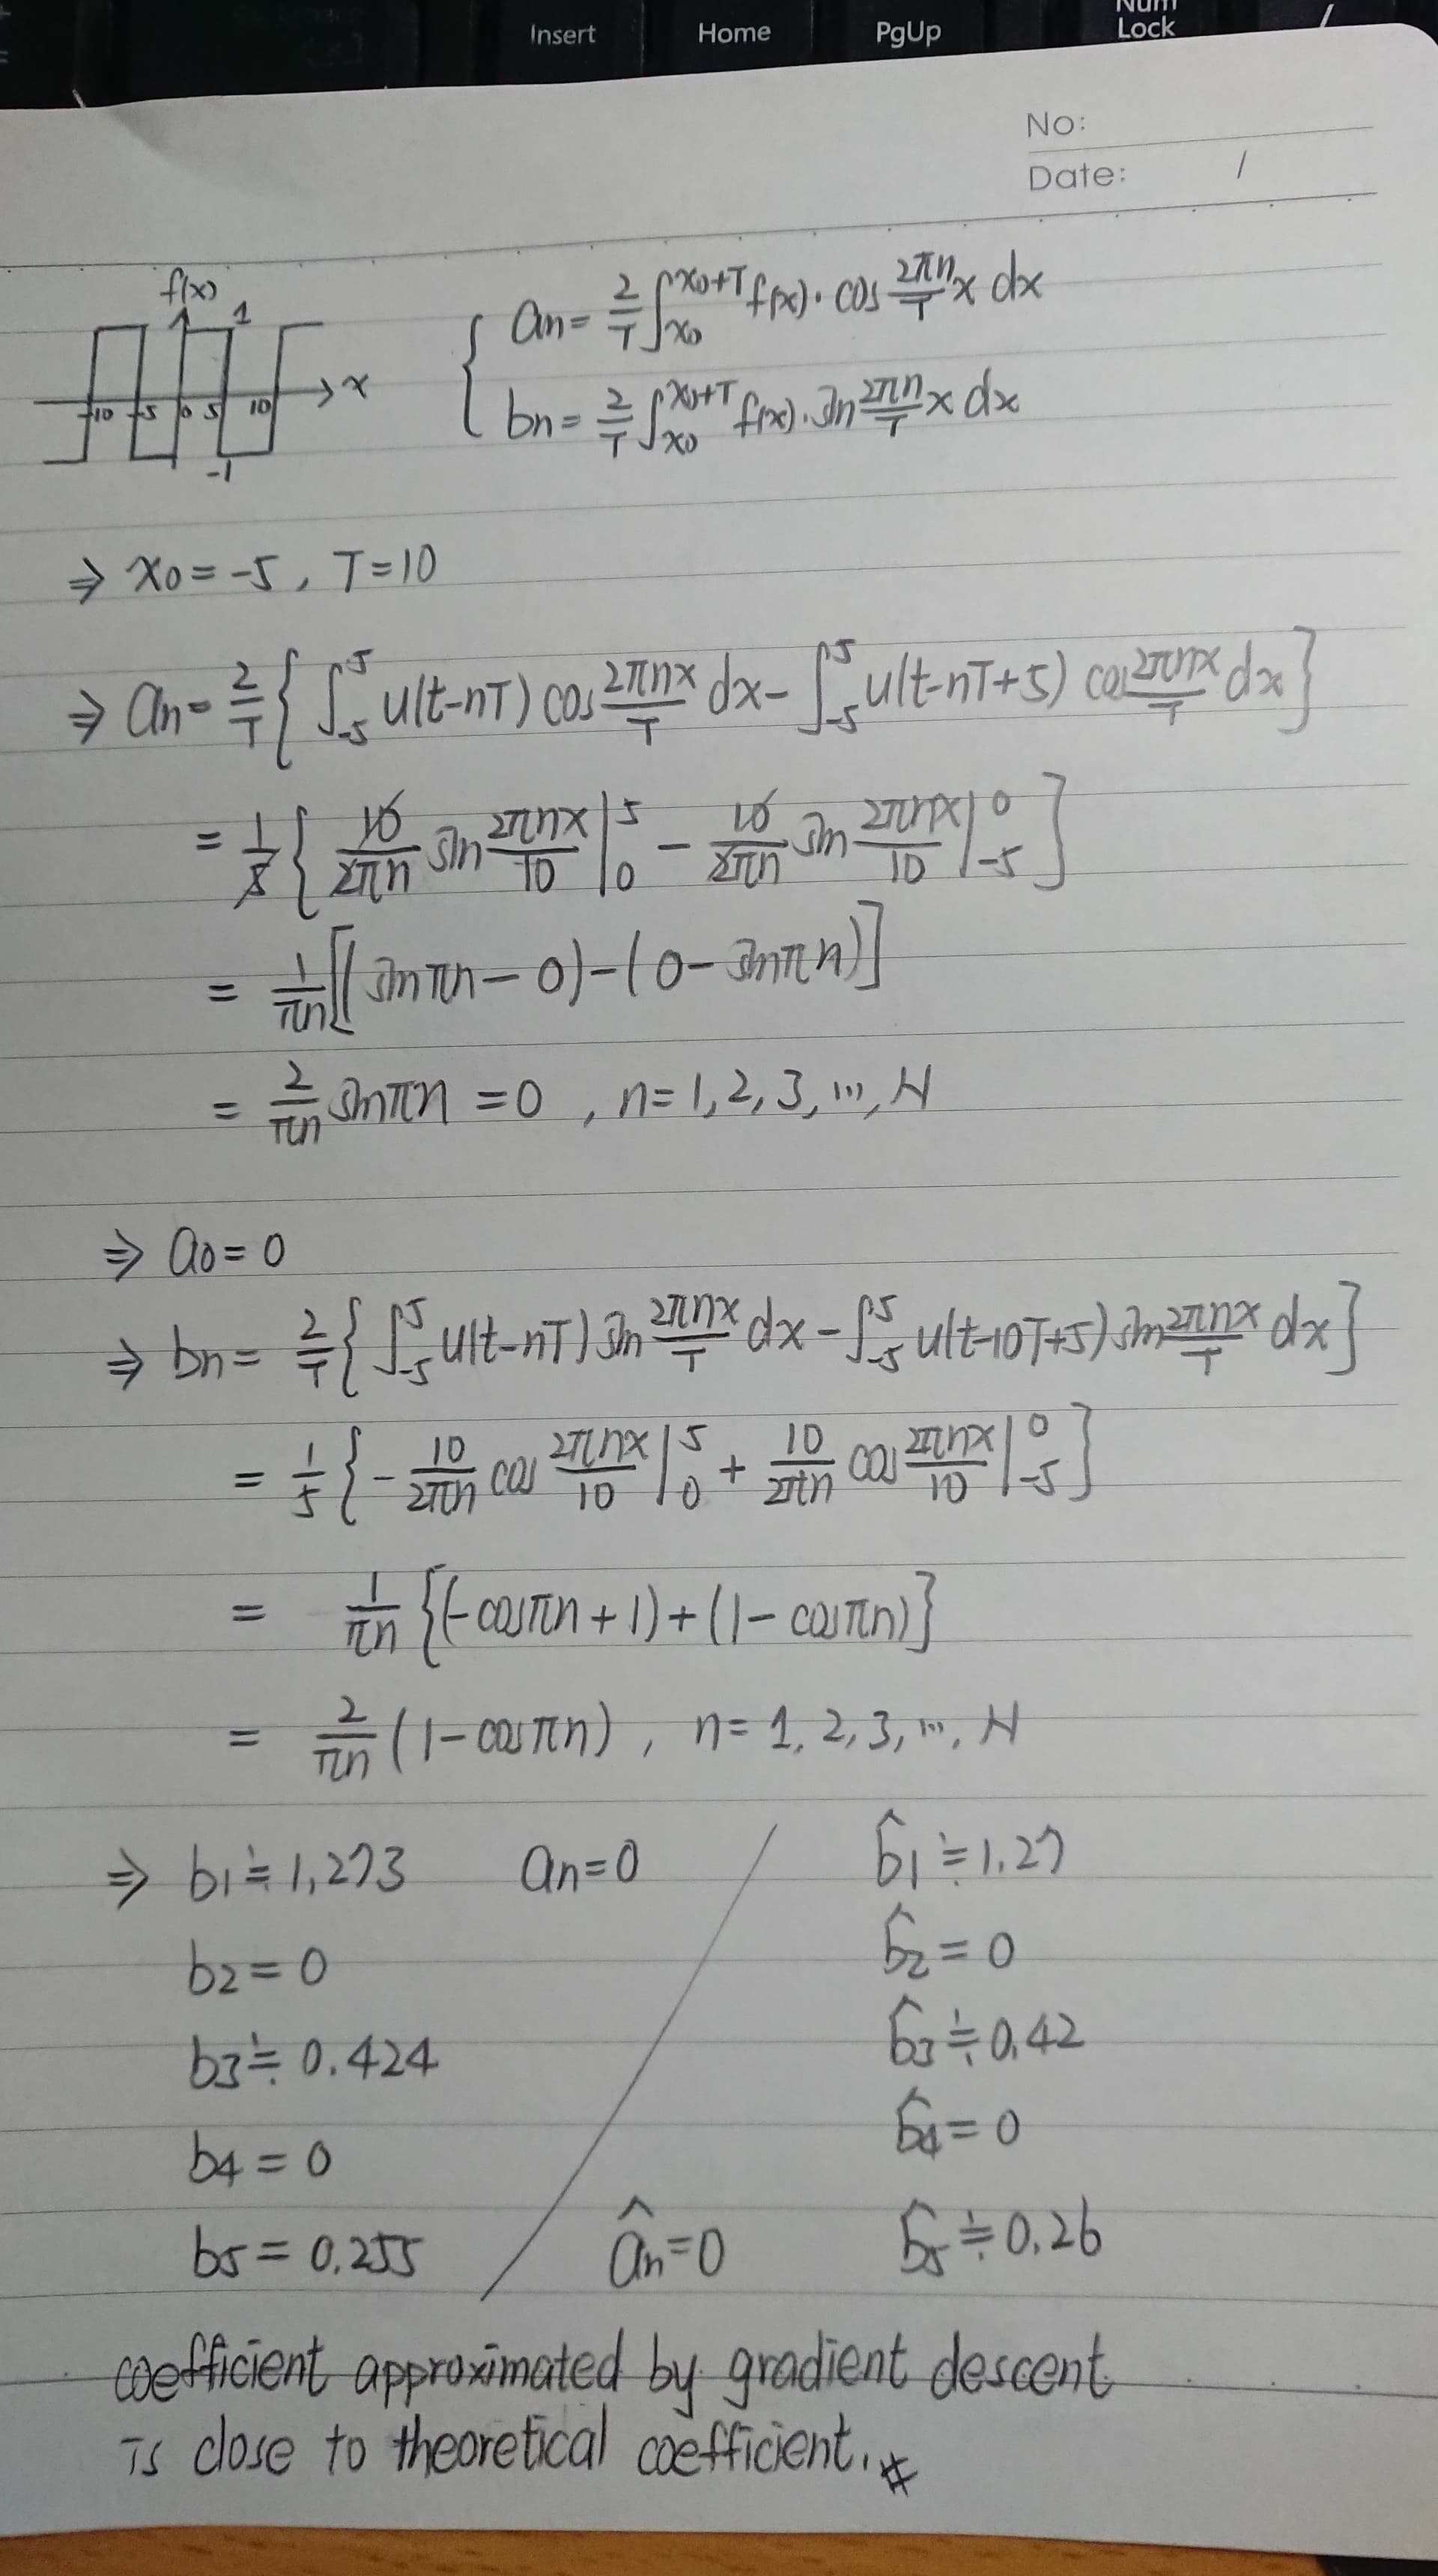 Insert Home PgUp Num Lock /
No:
Date: /
f(x)
1
-10 -5 0 5 10 x
-1
an = 2/T ∫_{x0}^{x0+T} f(x)·cos 2πn/T x dx
bn = 2/T ∫_{x0}^{x0+T} f(x)·sin 2πn/T x dx
⇒ x0 = -5, T = 10
⇒ an = 2/T { ∫_{-5}^{5} u(t-nT) cos 2πnx/T dx - ∫_{-5}^{5} u(t-nT+5) cos 2πnx/T dx }
= 1/5 { 10/2πn sin 2πnx/10 |_0^5 - 10/2πn sin 2πnx/10 |_{-5}^0 }
= 1/πn [(sinπn - 0) - (0 - sinπn)]
= 2/πn sinπn = 0 , n = 1, 2, 3, ..., N
⇒ a0 = 0
⇒ bn = 2/T { ∫_{-5}^{5} u(t-nT) sin 2πnx/T dx - ∫_{-5}^{5} u(t-10T+5) sin 2πnx/T dx }
= 1/5 { - 10/2πn cos 2πnx/10 |_0^5 + 10/2πn cos 2πnx/10 |_{-5}^0 }
= 1/πn {(-cosπn + 1) + (1 - cosπn)}
= 2/πn (1 - cosπn) , n = 1, 2, 3, ..., N
⇒ b1 ≒ 1.273 an = 0 b̂1 ≒ 1.27
b2 = 0 b̂2 = 0
b3 ≒ 0.424 b̂3 ≒ 0.42
b4 = 0 b̂4 = 0
b5 = 0.255 ân = 0 b̂5 ≒ 0.26
coefficient approximated by gradient descent
is close to theoretical coefficient. #